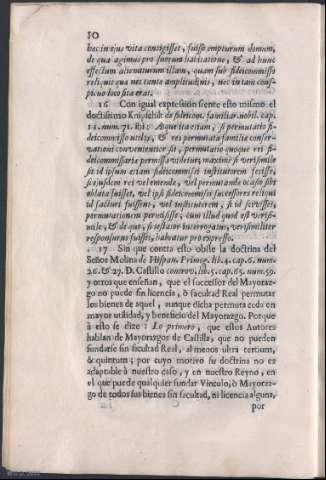 10
hac in ejus vita contigisset, fuisse empturum domum,
de qua agimus pro futura habitatione, & ad hunc
effectum alienaturum illam, quam sub fideicommisso
reliquit quæ nec tantæ amplitudinis, nec in tam cons-
picuo loco sita erat.
16 Con igual expression siente esto mismo el
doctissimo Knipschilt de fideicom. familiar. nobil. cap.
11. num. 71. ibi: Aque ita etiam, si permutatio fi-
deicommisso utilis, & rei permutata familiæ conser-
vationi convenientior sit, permutatio quoque rei fi-
deicommissariæ permissa videtur, maxime si verisimile
sit id ipsum etiam fideicommissi institutorem fecisse,
si ejusdem rei vel emenda, vel permutanda ocasio sibi
oblata fuisset, vel ipsi fideicommisso successores reliqui
id facturi fuissent, vel instituterem, si id scivisset,
permutationem permisisse; cum illud quod est verisi-
mile, & de quo, si testator interrogatus, verisimiliter
responsurus fuisset, habeatur pro expresso.
17 Sin que contra esto obste la doctrina del
Señor Molina de Hispan. Primog. lib. 4. cap. 6. num.
26. & 27. D. Castillo controv. lib. 5. cap. 65. num. 59.
y otros que enseñan, que el successor del Mayoraz-
go no puede sin licencia, ò facultad Real permutar
los bienes de aquel, aunque dicha permuta ceda en
mayor utilidad, y beneficio del Mayorazgo. Porque
à esto se dize: Lo primero, que estos Autores
hablan de Mayorazgos de Castilla, que no pueden
fundarse sin facultad Real, al menos ultra tertium,
& quintum; por cuyo motivo su doctrina no es
adaptable à nuestro caso, y en nuestro Reyno, en
el que puede qualquier fundar Vinculo, ò Mayoraz-
go de todos sus bienes sin facultad, ni licencia alguna,
por